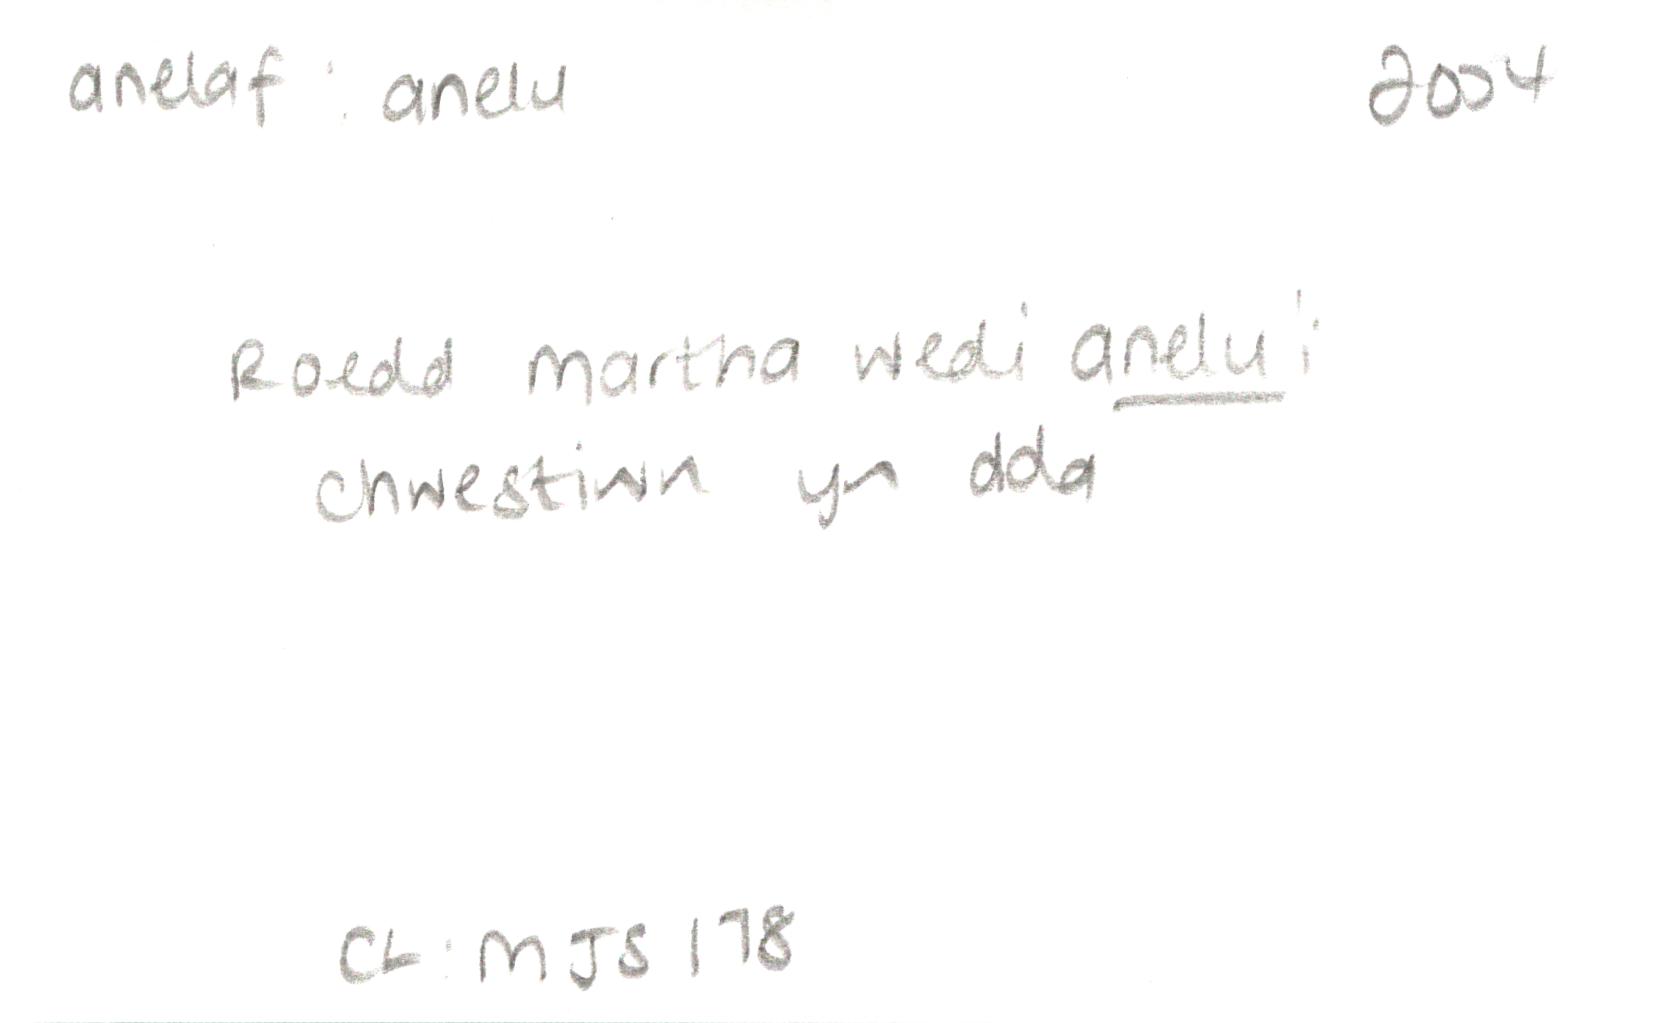 anelaf : anelu 2004
Roedd Martha wedi anelu'i
chwestiwn yn dda
CL : MJS 178